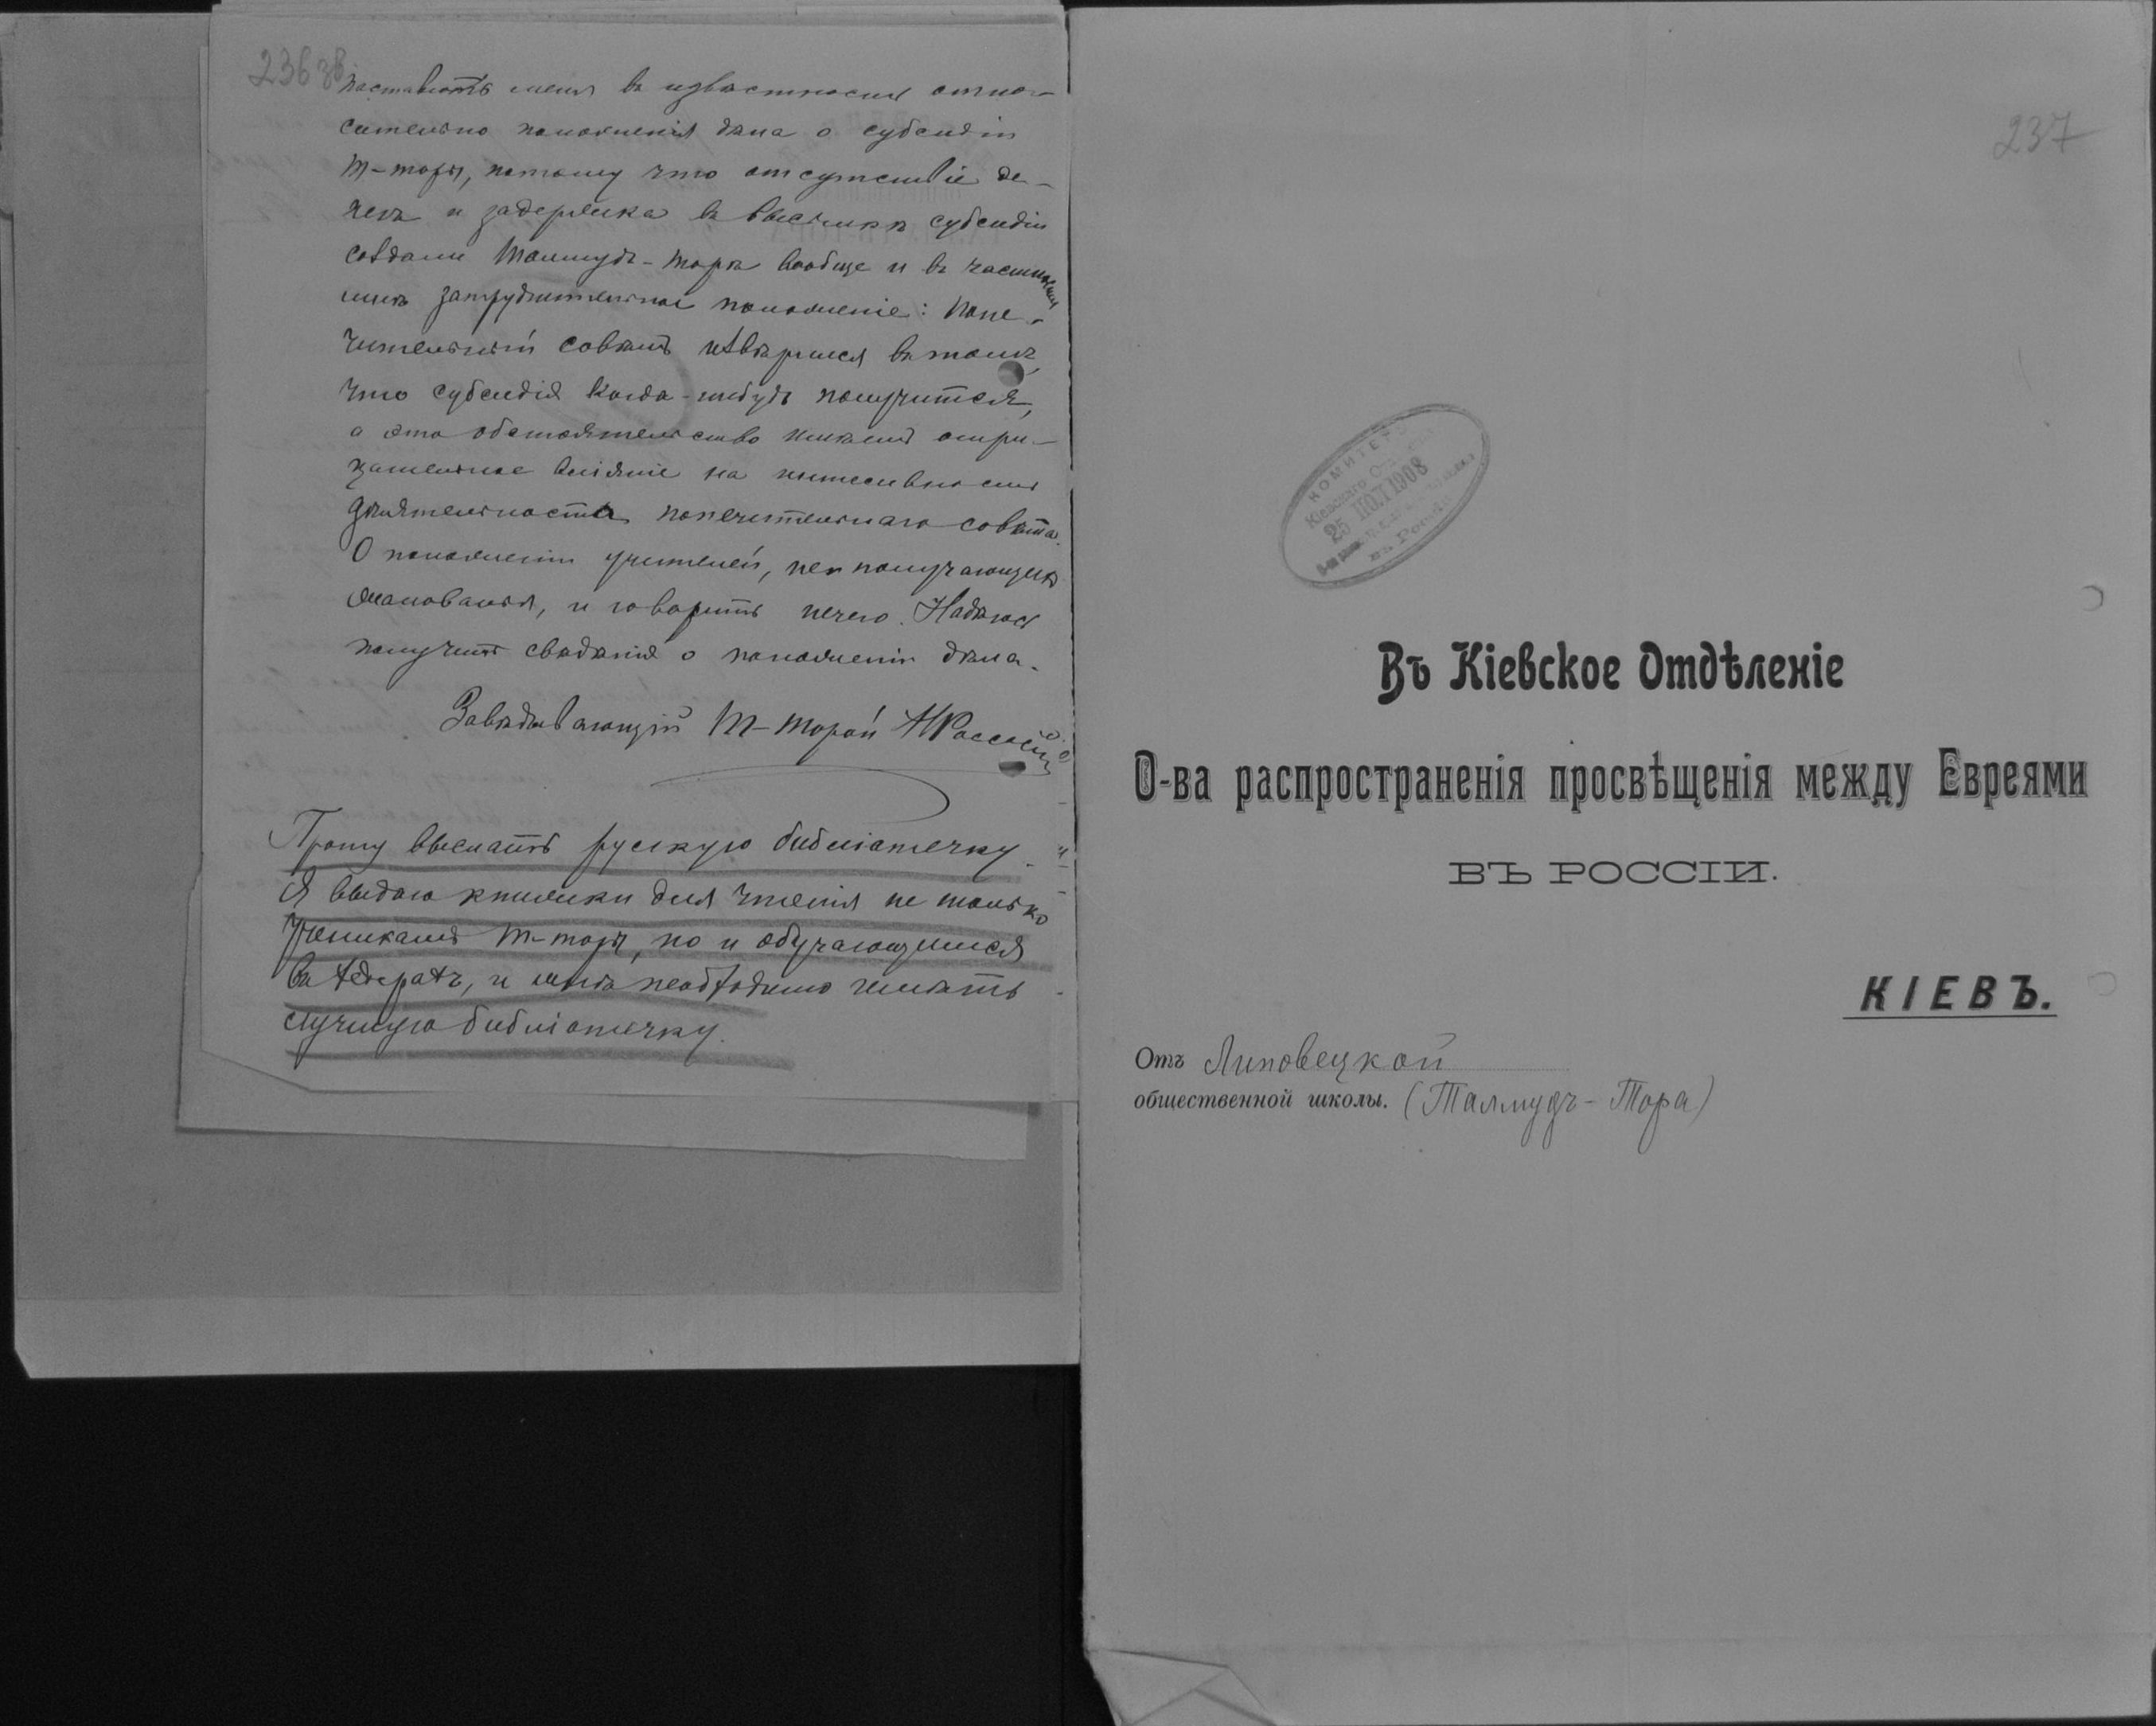 236 зв.
поставить меня въ извѣстность относ-
сительно положенія дѣла о субсидіи
Т-торы, потому что отсутствіе де-
негъ и задержка въ высылкѣ субсидіи
создали Талмудъ-Торѣ вообще и въ частности
мнѣ затруднительное положеніе: Попе-
чительный совѣтъ извѣрился въ томъ,
что субсидія когда-нибудь получится,
а это обстоятельство имѣетъ отри-
цательное вліяніе на интенсивность
дѣятельности попечительнаго совѣта.
О положеніи учителей, не получающихъ
жалованья, и говорить нечего. Надѣюсь
получить свѣдѣнія о положеніи дѣла.
Завѣдывающій Т-Торой
Прошу выслать русскую библіотечку.
Я выдаю книжки для чтенія не только
ученикамъ Т-торы, но и обучающимся
въ хедерахъ, и мнѣ необходимо имѣть
лучшую библіотечку.
237
КОМИТЕТ
Кіевскаго
25 ІЮЛ 1908
въ Россіи
Въ Кіевское Отдѣленіе
О-ва распространенія просвѣщенія между Евреями
ВЪ РОССІИ.
КІЕВЪ.
Отъ Липовецкой
общественной школы. (Талмудъ-Тора)